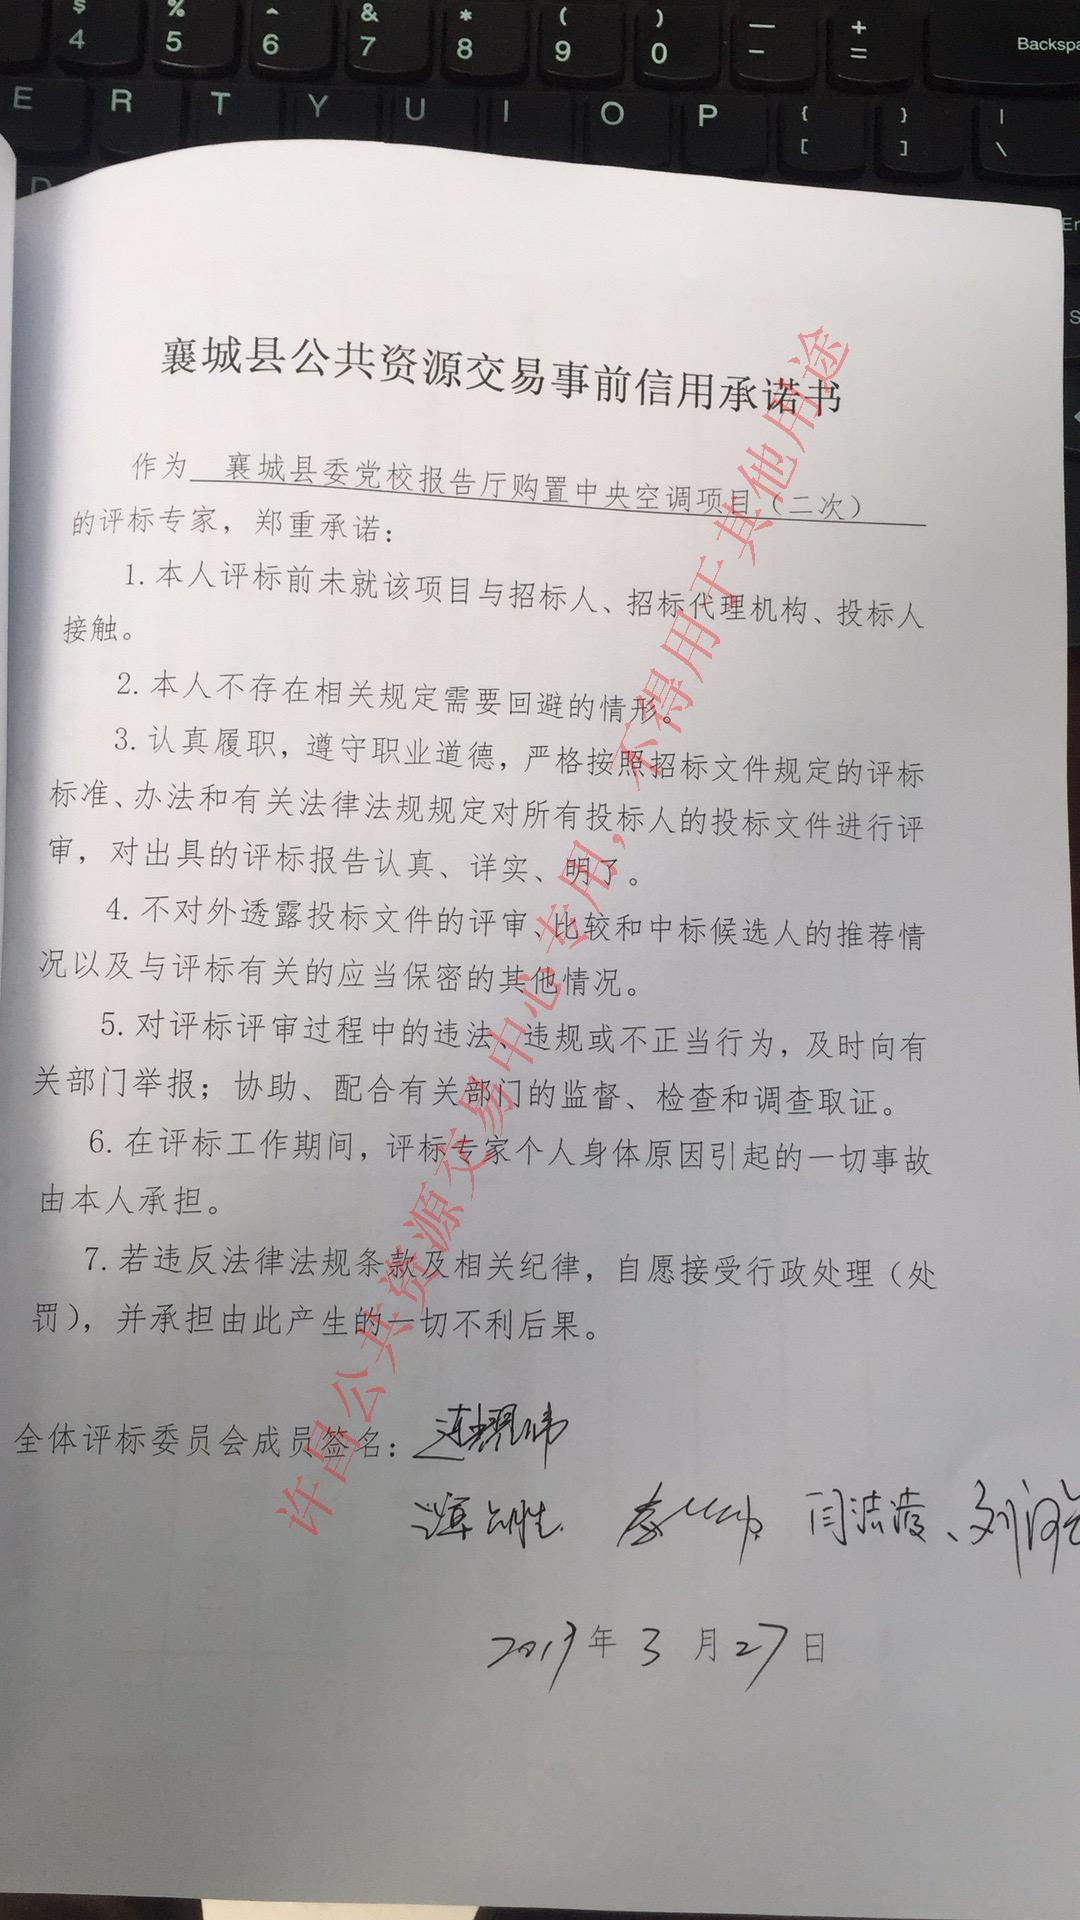 $ % ^ & * ( ) — +
4 5 6 7 8 9 0 - = Backspa
E R T Y U I O P { } |
[ ] \
D
En
S
襄城县公共资源交易事前信用承诺书
作为 襄城县委党校报告厅购置中央空调项目（二次）
的评标专家，郑重承诺：
1.本人评标前未就该项目与招标人、招标代理机构、投标人
接触。
2.本人不存在相关规定需要回避的情形。
3.认真履职，遵守职业道德，严格按照招标文件规定的评标
标准、办法和有关法律法规规定对所有投标人的投标文件进行评
审，对出具的评标报告认真、详实、明了。
4.不对外透露投标文件的评审、比较和中标候选人的推荐情
况以及与评标有关的应当保密的其他情况。
5.对评标评审过程中的违法、违规或不正当行为，及时向有
关部门举报；协助、配合有关部门的监督、检查和调查取证。
6.在评标工作期间，评标专家个人身体原因引起的一切事故
由本人承担。
7.若违反法律法规条款及相关纪律，自愿接受行政处理（处
罚），并承担由此产生的一切不利后果。
全体评标委员会成员签名：连耀伟
2019年3月27日
许昌公共资源交易中心专用，不得用于其他用途